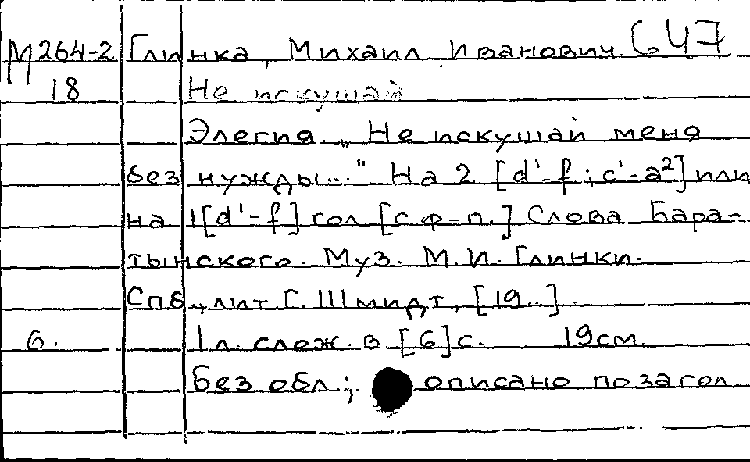 М 264-2 Глинка, Михаил Иванович. С 47
18 Не искушай
Элегия. „Не искушай меня
без нужды..." На 2 [d'-f; c'-a²] или
на 1 [d'-f] гол [с ф-п.] Слова Бара-
тынского. Муз. М.И. Глинки.
Спб., лит Г. Шмидт, [19..].
6. 1 л. слож. в [6] с. 19 см.
Без обл.; описано по загол